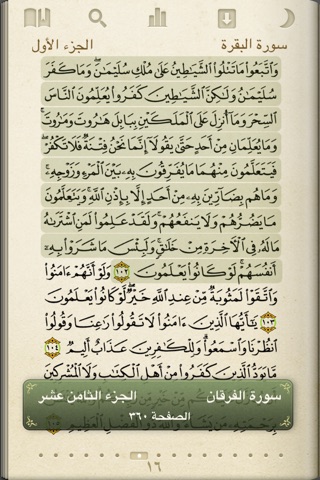 سورة البقرة
الجزء الأول
وَٱتَّبَعُوا۟ مَا تَتْلُوا۟ ٱلشَّيَـٰطِينُ عَلَىٰ مُلْكِ سُلَيْمَـٰنَ ۖ وَمَا كَفَرَ
سُلَيْمَـٰنُ وَلَـٰكِنَّ ٱلشَّيَـٰطِينَ كَفَرُوا۟ يُعَلِّمُونَ ٱلنَّاسَ
ٱلسِّحْرَ وَمَآ أُنزِلَ عَلَى ٱلْمَلَكَيْنِ بِبَابِلَ هَـٰرُوتَ وَمَـٰرُوتَ ۚ
وَمَا يُعَلِّمَانِ مِنْ أَحَدٍ حَتَّىٰ يَقُولَآ إِنَّمَا نَحْنُ فِتْنَةٌ فَلَا تَكْفُرْ ۖ
فَيَتَعَلَّمُونَ مِنْهُمَا مَا يُفَرِّقُونَ بِهِۦ بَيْنَ ٱلْمَرْءِ وَزَوْجِهِۦ ۚ
وَمَا هُم بِضَآرِّينَ بِهِۦ مِنْ أَحَدٍ إِلَّا بِإِذْنِ ٱللَّهِ ۚ وَيَتَعَلَّمُونَ
مَا يَضُرُّهُمْ وَلَا يَنفَعُهُمْ ۚ وَلَقَدْ عَلِمُوا۟ لَمَنِ ٱشْتَرَىٰهُ
مَا لَهُۥ فِى ٱلْـَٔاخِرَةِ مِنْ خَلَـٰقٍ ۚ وَلَبِئْسَ مَا شَرَوْا۟ بِهِۦٓ
أَنفُسَهُمْ ۚ لَوْ كَانُوا۟ يَعْلَمُونَ ١٠٢ وَلَوْ أَنَّهُمْ ءَامَنُوا۟
وَٱتَّقَوْا۟ لَمَثُوبَةٌ مِّنْ عِندِ ٱللَّهِ خَيْرٌ ۖ لَّوْ كَانُوا۟ يَعْلَمُونَ
١٠٣ يَـٰٓأَيُّهَا ٱلَّذِينَ ءَامَنُوا۟ لَا تَقُولُوا۟ رَٰعِنَا وَقُولُوا۟
ٱنظُرْنَا وَٱسْمَعُوا۟ ۗ وَلِلْكَـٰفِرِينَ عَذَابٌ أَلِيمٌ ١٠٤
مَّا يَوَدُّ ٱلَّذِينَ كَفَرُوا۟ مِنْ أَهْلِ ٱلْكِتَـٰبِ وَلَا ٱلْمُشْرِكِينَ
سورة الفرقان
الجزء الثامن عشر
الصفحة ٣٦٠
١٦